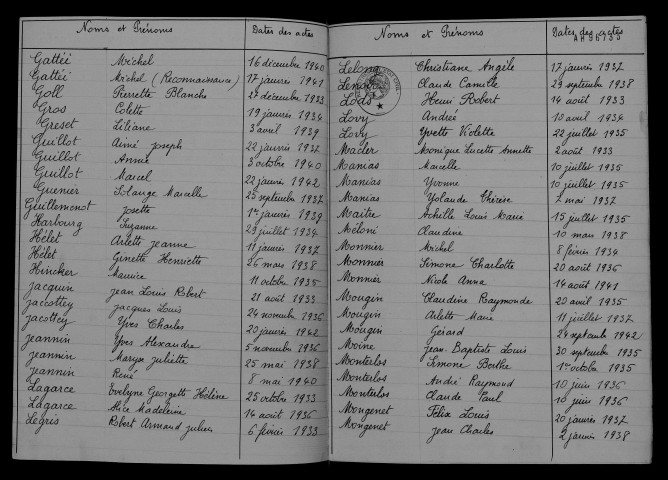 Noms et Prénoms Dates des actes
Gattéi Michel 16 décembre 1940
Gattéi Michel (Reconnaissance) 17 janvier 1941
Goll Pierrette Blanche 27 décembre 1933
Gros Colette 19 janvier 1934
Greset Liliane 3 avril 1939
Guillot Aimé Joseph 22 janvier 1937
Guillot Annie 3 octobre 1940
Guillot Marcel 22 janvier 1942
Guenier Solange Marcelle 25 septembre 1937
Guillemenot Josette 1er janvier 1939
Harbourg Suzanne 29 juillet 1934
Hélet Arlette Jeanne 11 janvier 1937
Hélet Ginette Henriette 26 mars 1938
Hincker Maurice 11 octobre 1935
Jacquin Jean Louis Robert 21 août 1933
Jacottey Jacques Louis 24 novembre 1936
Jacottey Yves Charles 20 janvier 1942
Jeannin Yves Alexandre 5 novembre 1936
Jeannin Maryse Juliette 25 mai 1938
Jeannin René 8 mai 1940
Lagarce Evelyne Georgette Hélène 25 octobre 1933
Lagarce Alice Madeleine 14 août 1936
Legris Robert Armand Julien 6 février 1933
Noms et Prénoms Dates des actes
AH96733
Lelong Christiane Angèle 17 janvier 1937
Lenoir Claude Camille 29 septembre 1938
Lods Henri Robert 14 août 1933
Lovy André 10 avril 1934
Lovy Yvette Violette 22 juillet 1935
Macler Monique Lucette Annette 2 août 1933
Manias Marcelle 10 juillet 1935
Manias Yvonne 10 juillet 1935
Manias Yolande Thérèse 7 mai 1937
Maitre Achille Louis Marie 15 juillet 1935
Méloni Claudine 10 mars 1938
Monnier Michel 8 février 1934
Monnier Simone Charlotte 20 août 1936
Monnier Nicole Anna 14 août 1941
Mougin Claudine Raymonde 20 avril 1935
Mougin Arlette Marie 11 juillet 1937
Mougin Gérard 24 septembre 1942
Moine Jean-Baptiste Louis 30 septembre 1935
Monterlos Simone Berthe 1er octobre 1935
Monterlos André Raymond 10 juin 1936
Monterlos Claude Paul 10 juin 1936
Mongenet Félix Louis 20 janvier 1937
Mongenet Jean Charles 2 janvier 1938